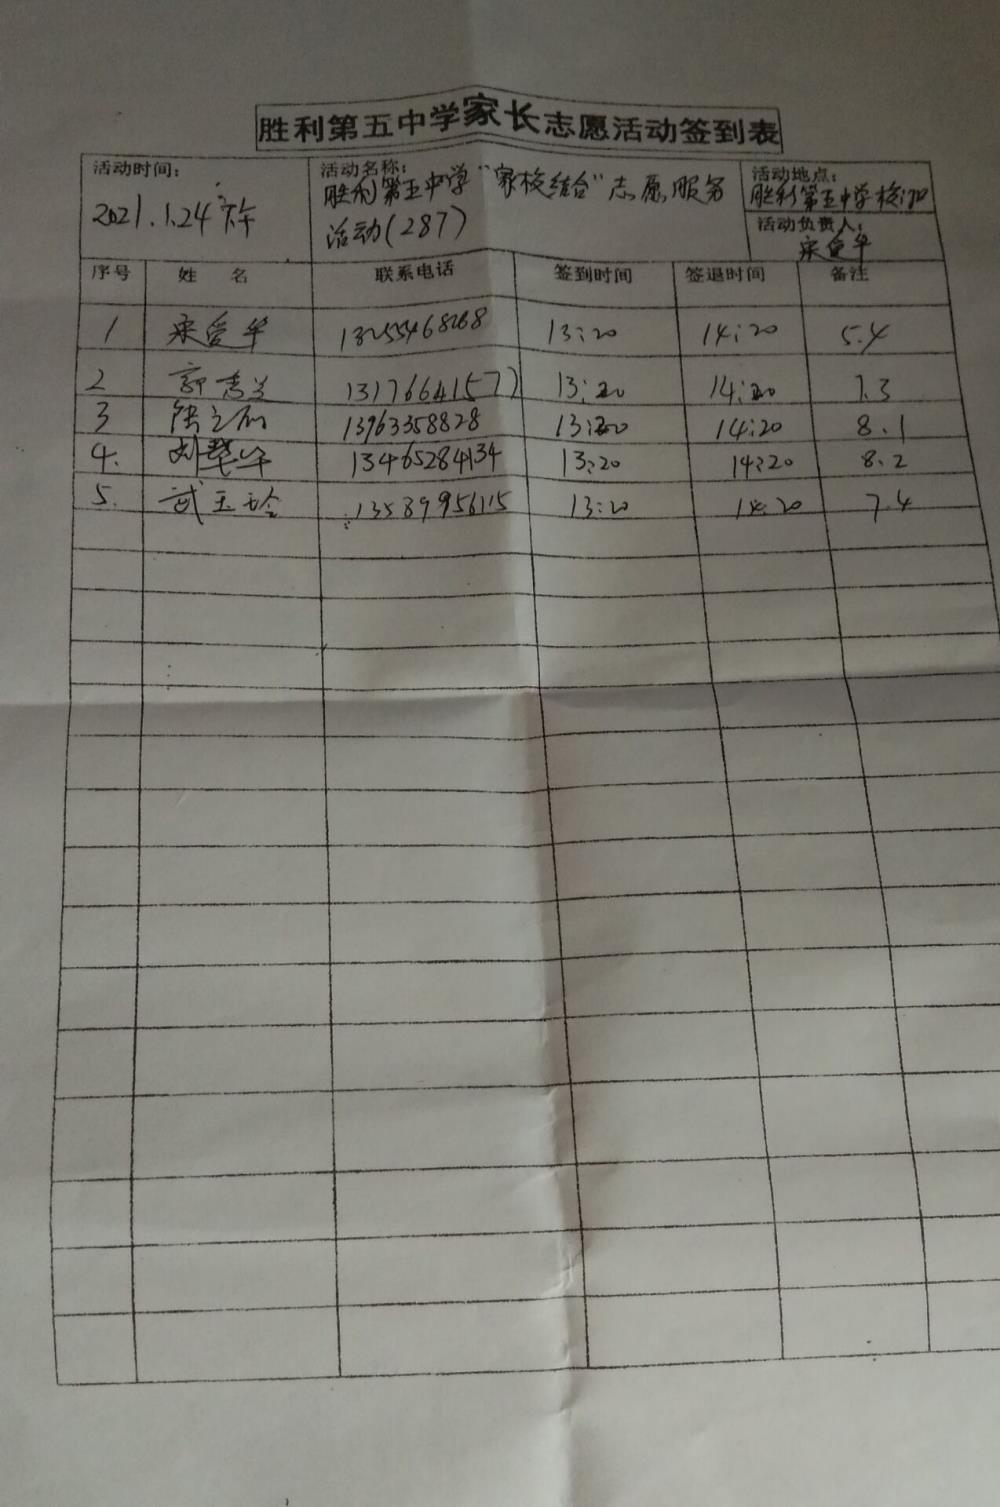 胜利第五中学家长志愿活动签到表
活动时间:
2021.1.24 下午
活动名称:
胜利第五中学“家校结合”志愿服务
活动(287)
活动地点:
胜利第五中学校门口
活动负责人:
宋爱华
序号 姓 名 联系电话 签到时间 签退时间 备注
1 宋爱华 13255468268 13:20 14:20 5.4
2 郭秀兰 13176641577 13:20 14:20 7.3
3 13963358828 13:20 14:20 8.1
4. 刘翠华 13465284134 13:20 14:20 8.2
5. 武玉玲 13589956115 13:20 14:20 7.4